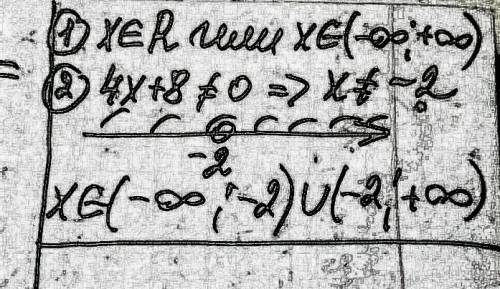 ① x∈R или x∈(-∞;+∞)
② 4x+8≠0 => x≠-2
-2
x∈(-∞;-2)∪(-2;+∞)